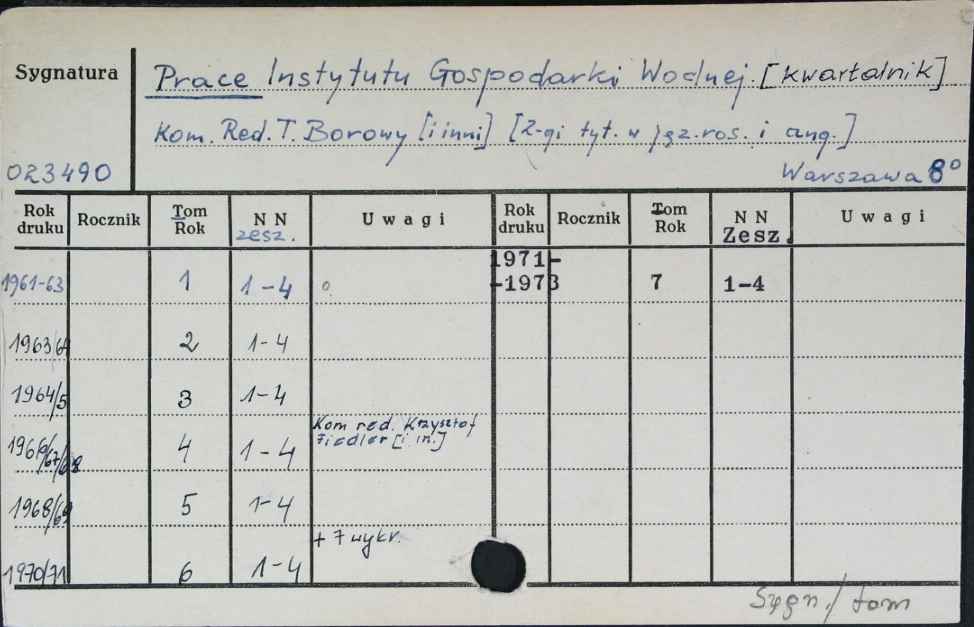 Sygnatura
Prace Instytutu Gospodarki Wodnej. [kwartalnik]
Kom. Red. T. Borowy [i inni] [2-gi tyt. w jęz. ros. i ang.]
023490
Warszawa 8°
Rok druku Rocznik Tom Rok N N zesz. Uwagi Rok druku Rocznik Tom Rok N N Zesz. Uwagi
1961-63 1 1-4 1971-
-1973 7 1-4
1963/64 2 1-4
1964/5 3 1-4
1966/67/68 4 1-4 Kom red. Krzysztof
Fiedler [i in.]
1968/69 5 1-4
+ 7 wykr.
1970/71 6 1-4
Sygn./tom